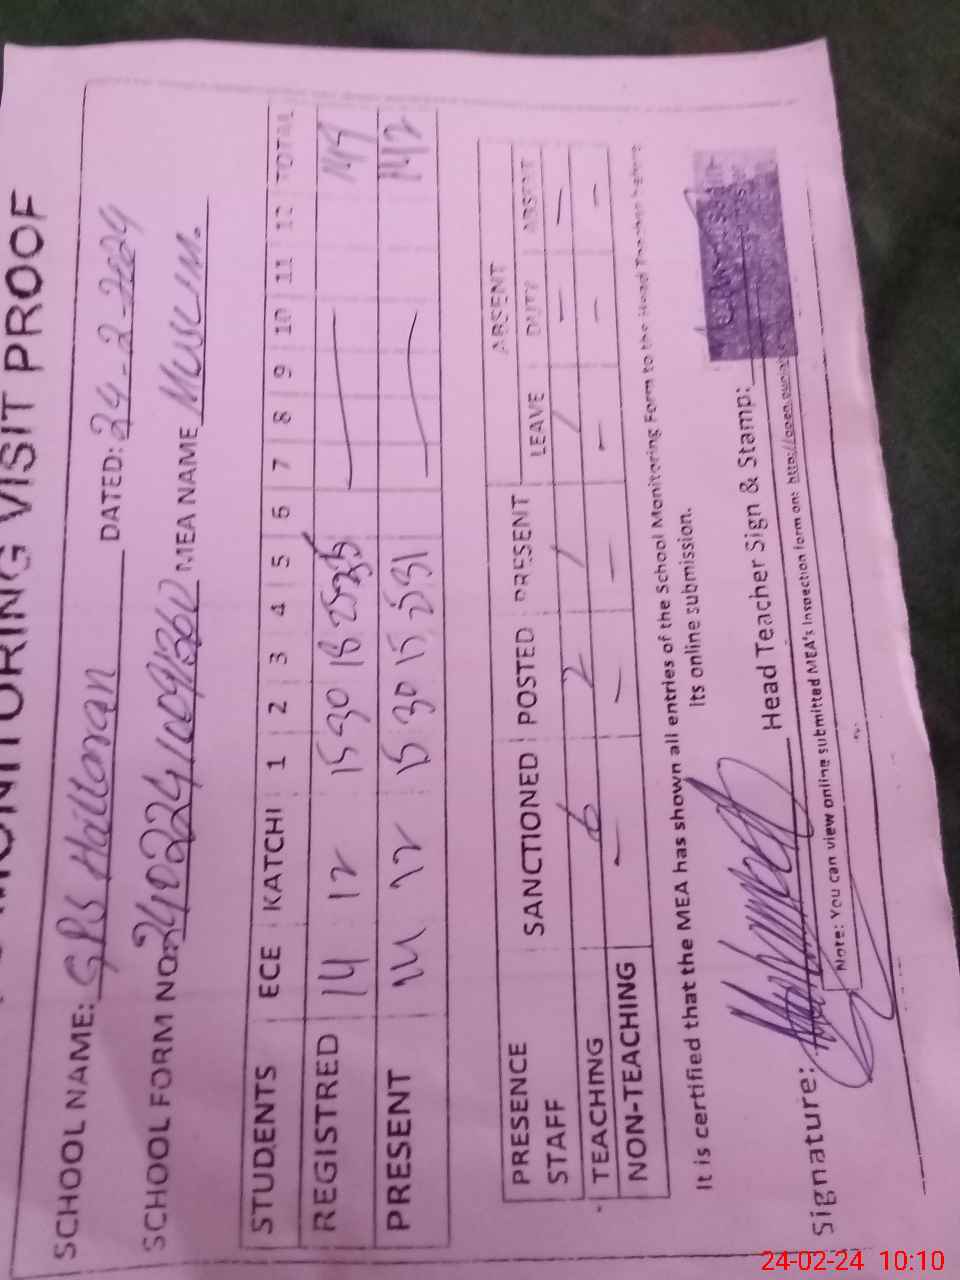 MONITORING VISIT PROOF
SCHOOL NAME: GPS DATED: 24-2-2024
SCHOOL FORM NO: MEA NAME
STUDENTS ECE KATCHI 1 2 3 4 5 6 7 8 9 10 11 12 TOTAL
REGISTRED 14 12 15 30 18 25 35 149
PRESENT 14 12 15 30 15 25 31 142
ABSENT
PRESENCE SANCTIONED POSTED PRESENT LEAVE DUTY ABSENT
STAFF
TEACHING 6 2 / / - -
NON-TEACHING - - - - - -
It is certified that the MEA has shown all entries of the School Monitoring Form to the Head Teacher before
Its online submission.
Signature: Head Teacher Sign & Stamp:
Note: You can view online submitted MEA's Inspection form on:
24-02-24 10:10